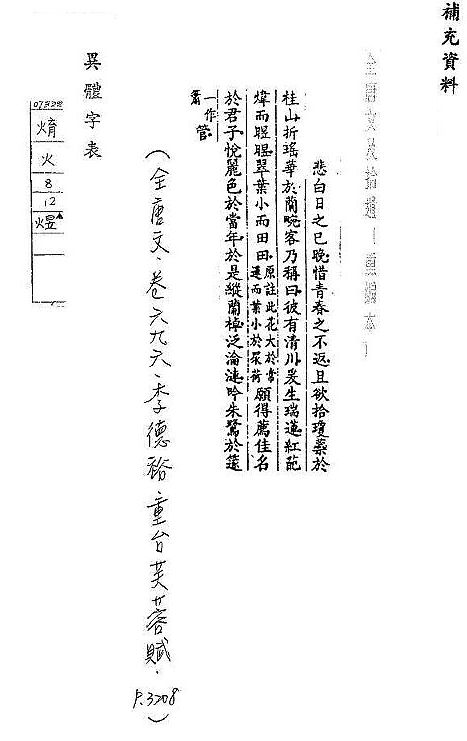 補充資料
全唐文及拾遺(重編本)
悲白日之已晚惜青春之不返且欲拾瓊蘂於
桂山折瑤華於蘭畹客乃稱曰彼有清川爰生瑞蓮紅葩
煒而煜煜翠葉小而田田原註此花大於常蓮而葉小於眾荷願得薦佳名
於君子悅麗色於當年於是縱蘭棹泛淪漣吟朱鷺於篴
簫一作管
(全唐文.卷六九六.李德裕.重台芙蓉賦.P.3208)
異體字表
07322
焴
火
8
12
煜